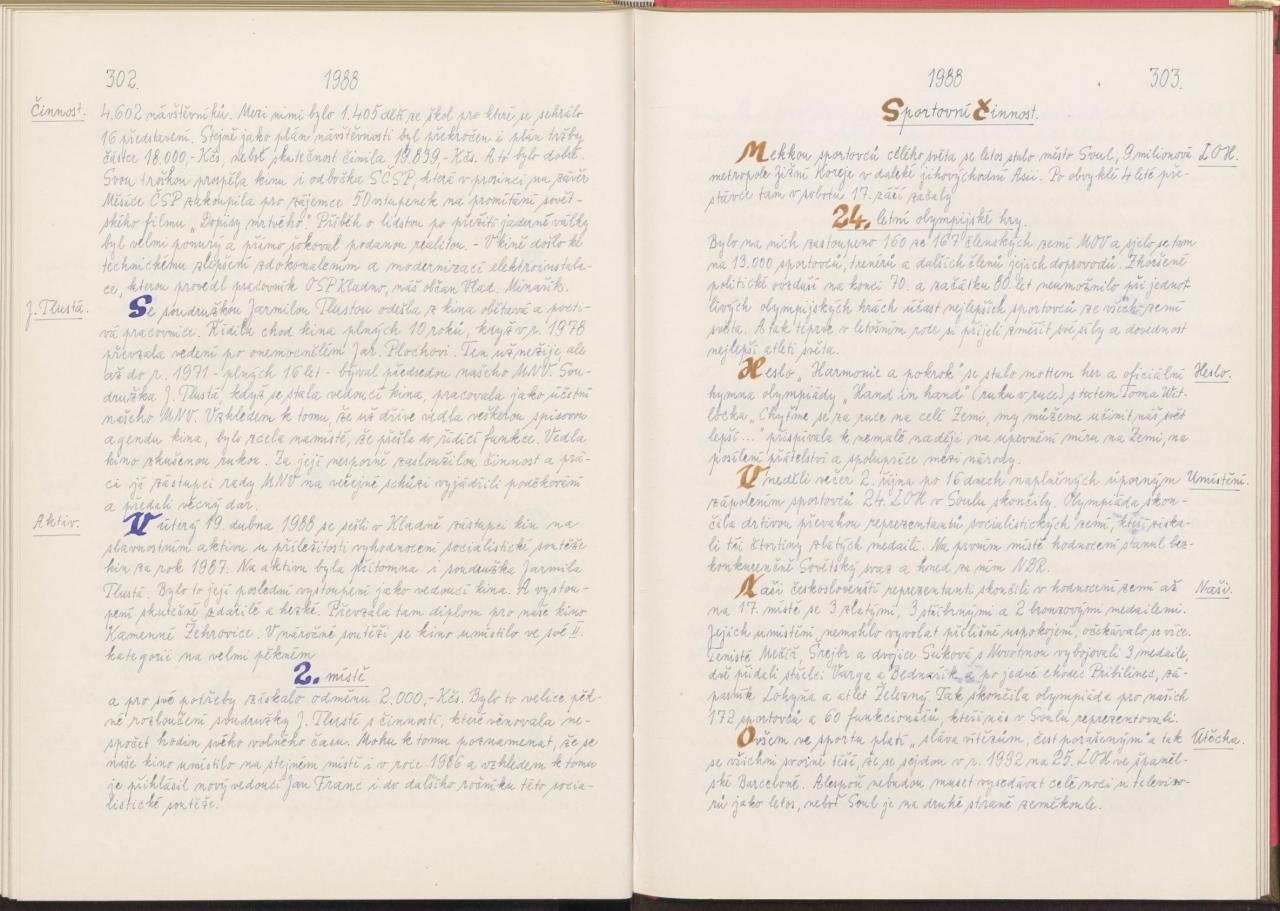 302. 1988
Činnost. 4.602 návštěvníků. Mezi nimi bylo 1.405 dětí ze škol pro které se sehrálo
16 představení. Stejně jako plán návštěvnosti byl překročen i plán tržby
částce 18.000,- Kčs, neboť skutečnost činila 19.899,- Kčs. A to bylo dobré.
Svou troškou prospěla kinu i odbočka SČSP, která v prosinci na závěr
Měsíce ČSP zakoupila pro zájemce 50 vstupenek na promítání sovět-
ského filmu „Dopisy mrtvého". Příběh o lidstvu po přežití jaderné války
byl velmi ponurý a přímo šokoval podanou realitou. - V kině došlo ke
technickému zlepšení zdokonalením a modernizací elektroinstala-
ce, kterou provedl pracovník OSP Kladno, náš občan Vlad. Minařík.
J. Tlustá. Se soudružkou Jarmilou Tlustou odešla z kina obětavá a pocti-
vá pracovnice. Řídila chod kina plných 10 roků, když v r. 1978
převzala vedení po onemocnělém Jar. Plochovi. Ten už nežije, ale
až do r. 1971 - plných 16 let - býval předsedou našeho MNV. Sou-
družka J. Tlustá, když se stala vedoucí kina, pracovala jako účetní
našeho MNV. Vzhledem k tomu, že už dříve vedla veškerou spisovou
agendu kina, bylo zcela namístě, že přišla do řídící funkce. Vedla
kino zkušenou rukou. Za její nesporně zasloužilou činnost a prá-
ci jí zástupci rady MNV na veřejné schůzi vyjádřili poděkování
a předali věcný dar.
Aktiv. V úterý 19. dubna 1988 se sešli v Kladně zástupci kin na
slavnostním aktivu u příležitosti vyhodnocení socialistické soutěže
kin za rok 1987. Na aktivu byla přítomna i soudružka Jarmila
Tlustá. Bylo to její poslední vystoupení jako vedoucí kina. A vystou-
pení skutečně zdařilé a hezké. Převzala tam diplom pro naše kino
Kamenné Žehrovice. V náročné soutěži se kino umístilo ve své II.
kategorii na velmi pěkném
2. místě
a pro své potřeby získalo odměnu 2.000,- Kčs. Bylo to velice pěk-
né rozloučení soudružky J. Tlusté s činností, které věnovala ne-
spočet hodin svého volného času. Mohu k tomu poznamenat, že se
naše kino umístilo na stejném místě i v roce 1986 a vzhledem k tomu
je přihlásil nový vedoucí Jan Franc i do dalšího ročníku této socia-
listické soutěže.
1988 303.
Sportovní činnost.
Mekkou sportovců celého světa se letos stalo město Soul, 9 milionová LOH.
metropole Jižní Koreje v daleké jihovýchodní Asii. Po obvyklé 4 leté pře-
stávce tam v sobotu 17. září začaly
24. letní olympijské hry.
Bylo na nich zastoupeno 160 ze 167 členských zemí MOV a sjelo se tam
na 13.000 sportovců, trenérů a dalších členů jejich doprovodů. Zhoršené
politické ovzduší na konci 70. a začátku 80. let neumožnilo při jednot-
livých olympijských hrách účast nejlepších sportovců ze všech zemí
světa. A tak teprve v letošním roce si přijeli změřit své síly a dovednost
nejlepší atleti světa.
Heslo „Harmonie a pokrok" se stalo mottem her a oficiální Heslo.
hymna olympiády „Hand in hand" (ruku v ruce) s textem Toma Wit-
locka „Chyťme se za ruce na celé Zemi, my můžeme učinit náš svět
lepší ..." přispívala k nemalé naději na upevnění míru na Zemi, na
posílení přátelství a spolupráce mezi národy.
V neděli večer 2. října po 16 dnech naplněných úporným Umístění.
zápolením sportovců 24. LOH v Soulu skončily. Olympiáda skon-
čila drtivou převahou reprezentantů socialistických zemí, kteří získa-
li tři čtvrtiny zlatých medailí. Na prvním místě hodnocení stanul bez-
konkurenčně Sovětský svaz a hned za ním NDR.
Naši českoslovenští reprezentanti skončili v hodnocení zemí až Naši.
na 17. místě se 3 zlatými, 3 stříbrnými a 2 bronzovými medailemi.
Jejich umístění nemohlo vyvolat přílišné uspokojení, očekávalo se více.
Tenisté Mečíř, Šrejbr a dvojice Suková s Novotnou vybojovali 3 medaile,
dvě přidali střelci Varga a Bednařík a po jedné chodec Pribilinec, zá-
pasník Lohyňa a atlet Železný. Tak skončila olympiáda pro našich
172 sportovců a 60 funkcionářů, kteří nás v Soulu reprezentovali.
Ovšem ve sportu platí „sláva vítězům, čest poraženým" a tak Útěcha.
se všichni svorně těší, že se sejdou v r. 1992 na 25. LOH ve španěl-
ské Barceloně. Alespoň nebudou muset vysedávat celé noci u televizo-
rů jako letos, neboť Soul je na druhé straně zeměkoule.